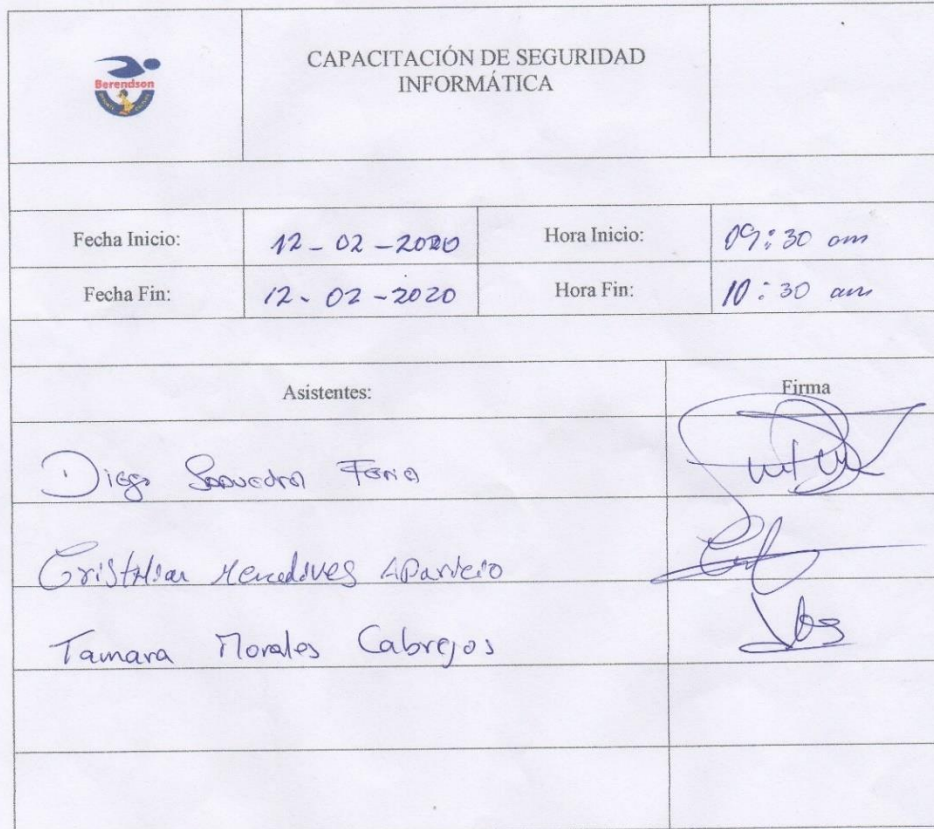 Berendson
CAPACITACIÓN DE SEGURIDAD
INFORMÁTICA
Fecha Inicio: 12-02-2020 Hora Inicio: 09:30 am
Fecha Fin: 12-02-2020 Hora Fin: 10:30 am
Asistentes: Firma
Diego Saavedra
Aparicio
Tamara Morales Cabrejos